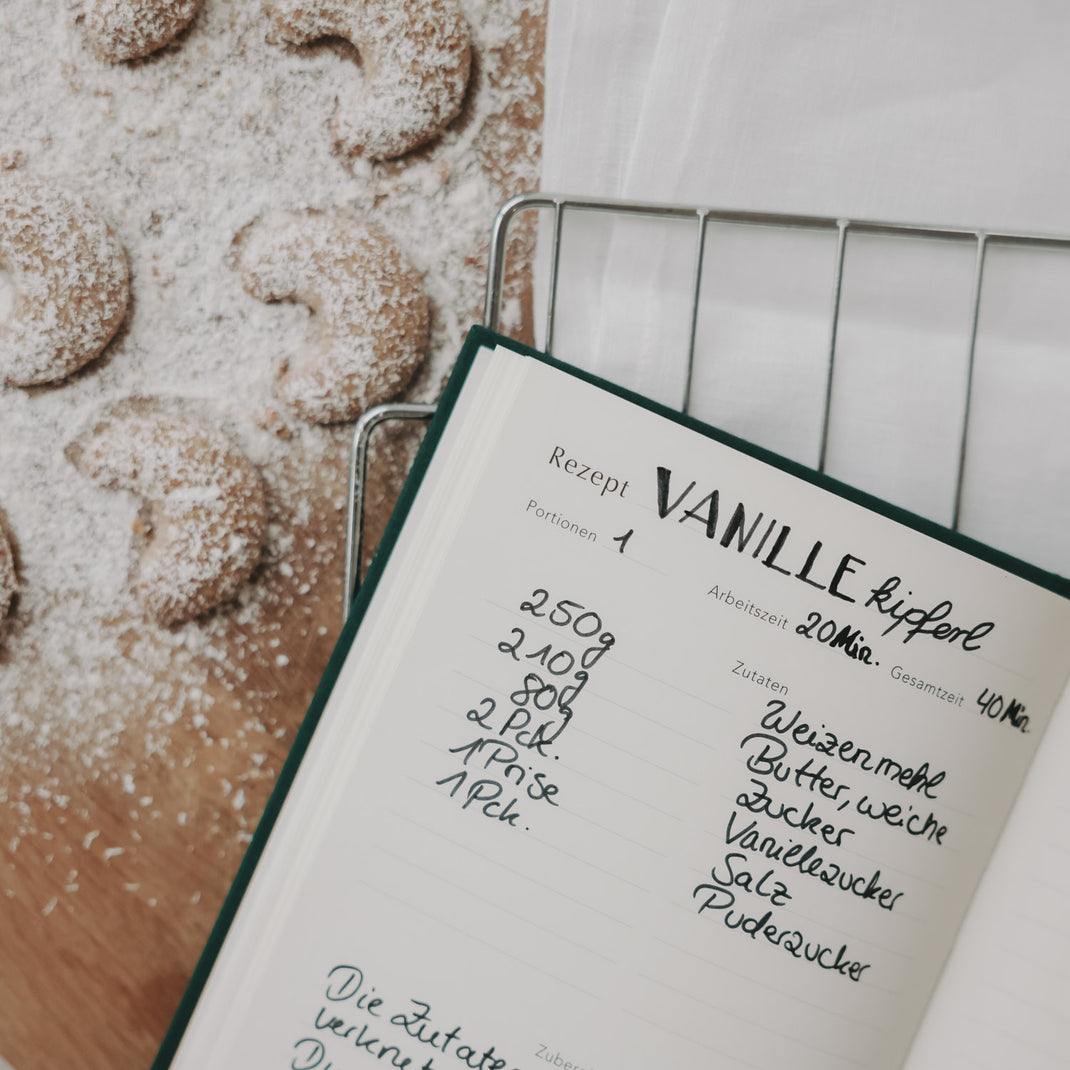 Rezept VANILLE kipferl
Portionen 1
Arbeitszeit 20 Min. Gesamtzeit 40 Min.
Zutaten
250g Weizenmehl
210g Butter, weiche
80g Zucker
2 Pck. Vanillezucker
1 Prise Salz
1 Pck. Puderzucker
Die Zutaten